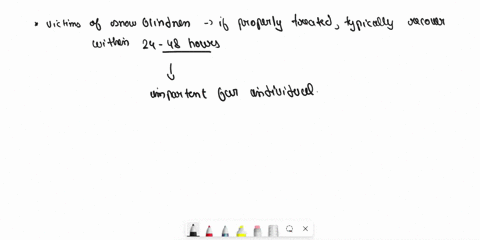 * victims of snow blindnes → if properly treated, typically recover
within 24 - 48 hours
↓
important for individual.